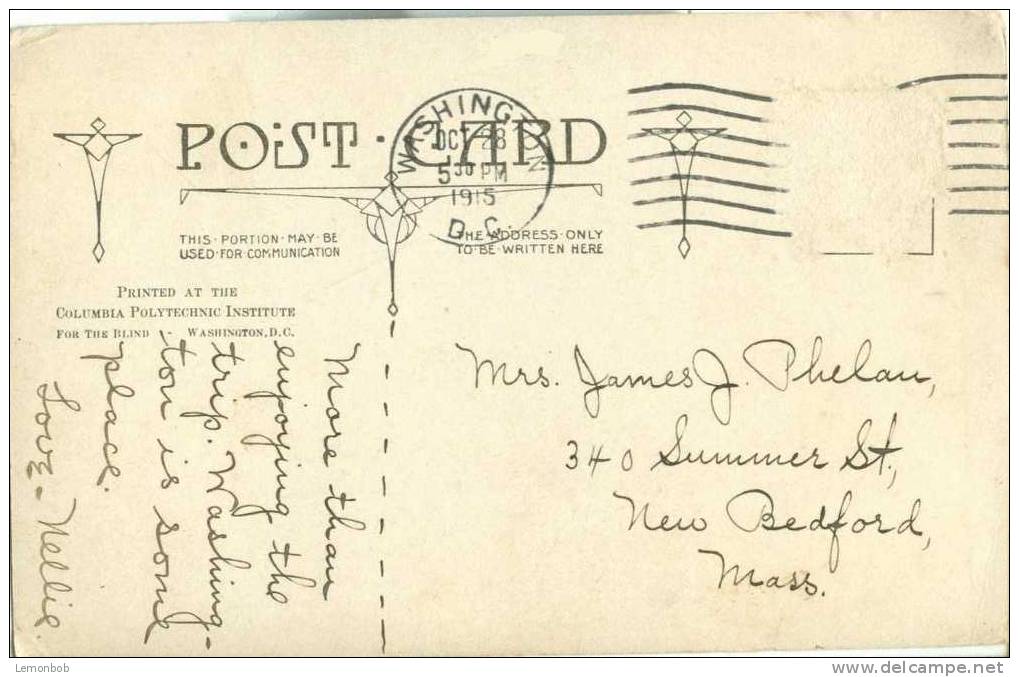 POST · CARD
WASHINGTON
OCT 28
5 30 PM
1915
D.C.
THIS · PORTION · MAY · BE
USED · FOR · COMMUNICATION
THE · ADDRESS · ONLY
TO · BE · WRITTEN HERE
PRINTED AT THE
COLUMBIA POLYTECHNIC INSTITUTE
FOR THE BLIND - WASHINGTON, D.C.
More than
enjoying the
trip. Washing-
ton is some
place.
Love - Nellie.
Mrs. James J. Phelan,
340 Summer St.,
New Bedford,
Mass.
Lemonbob
www.delcampe.net